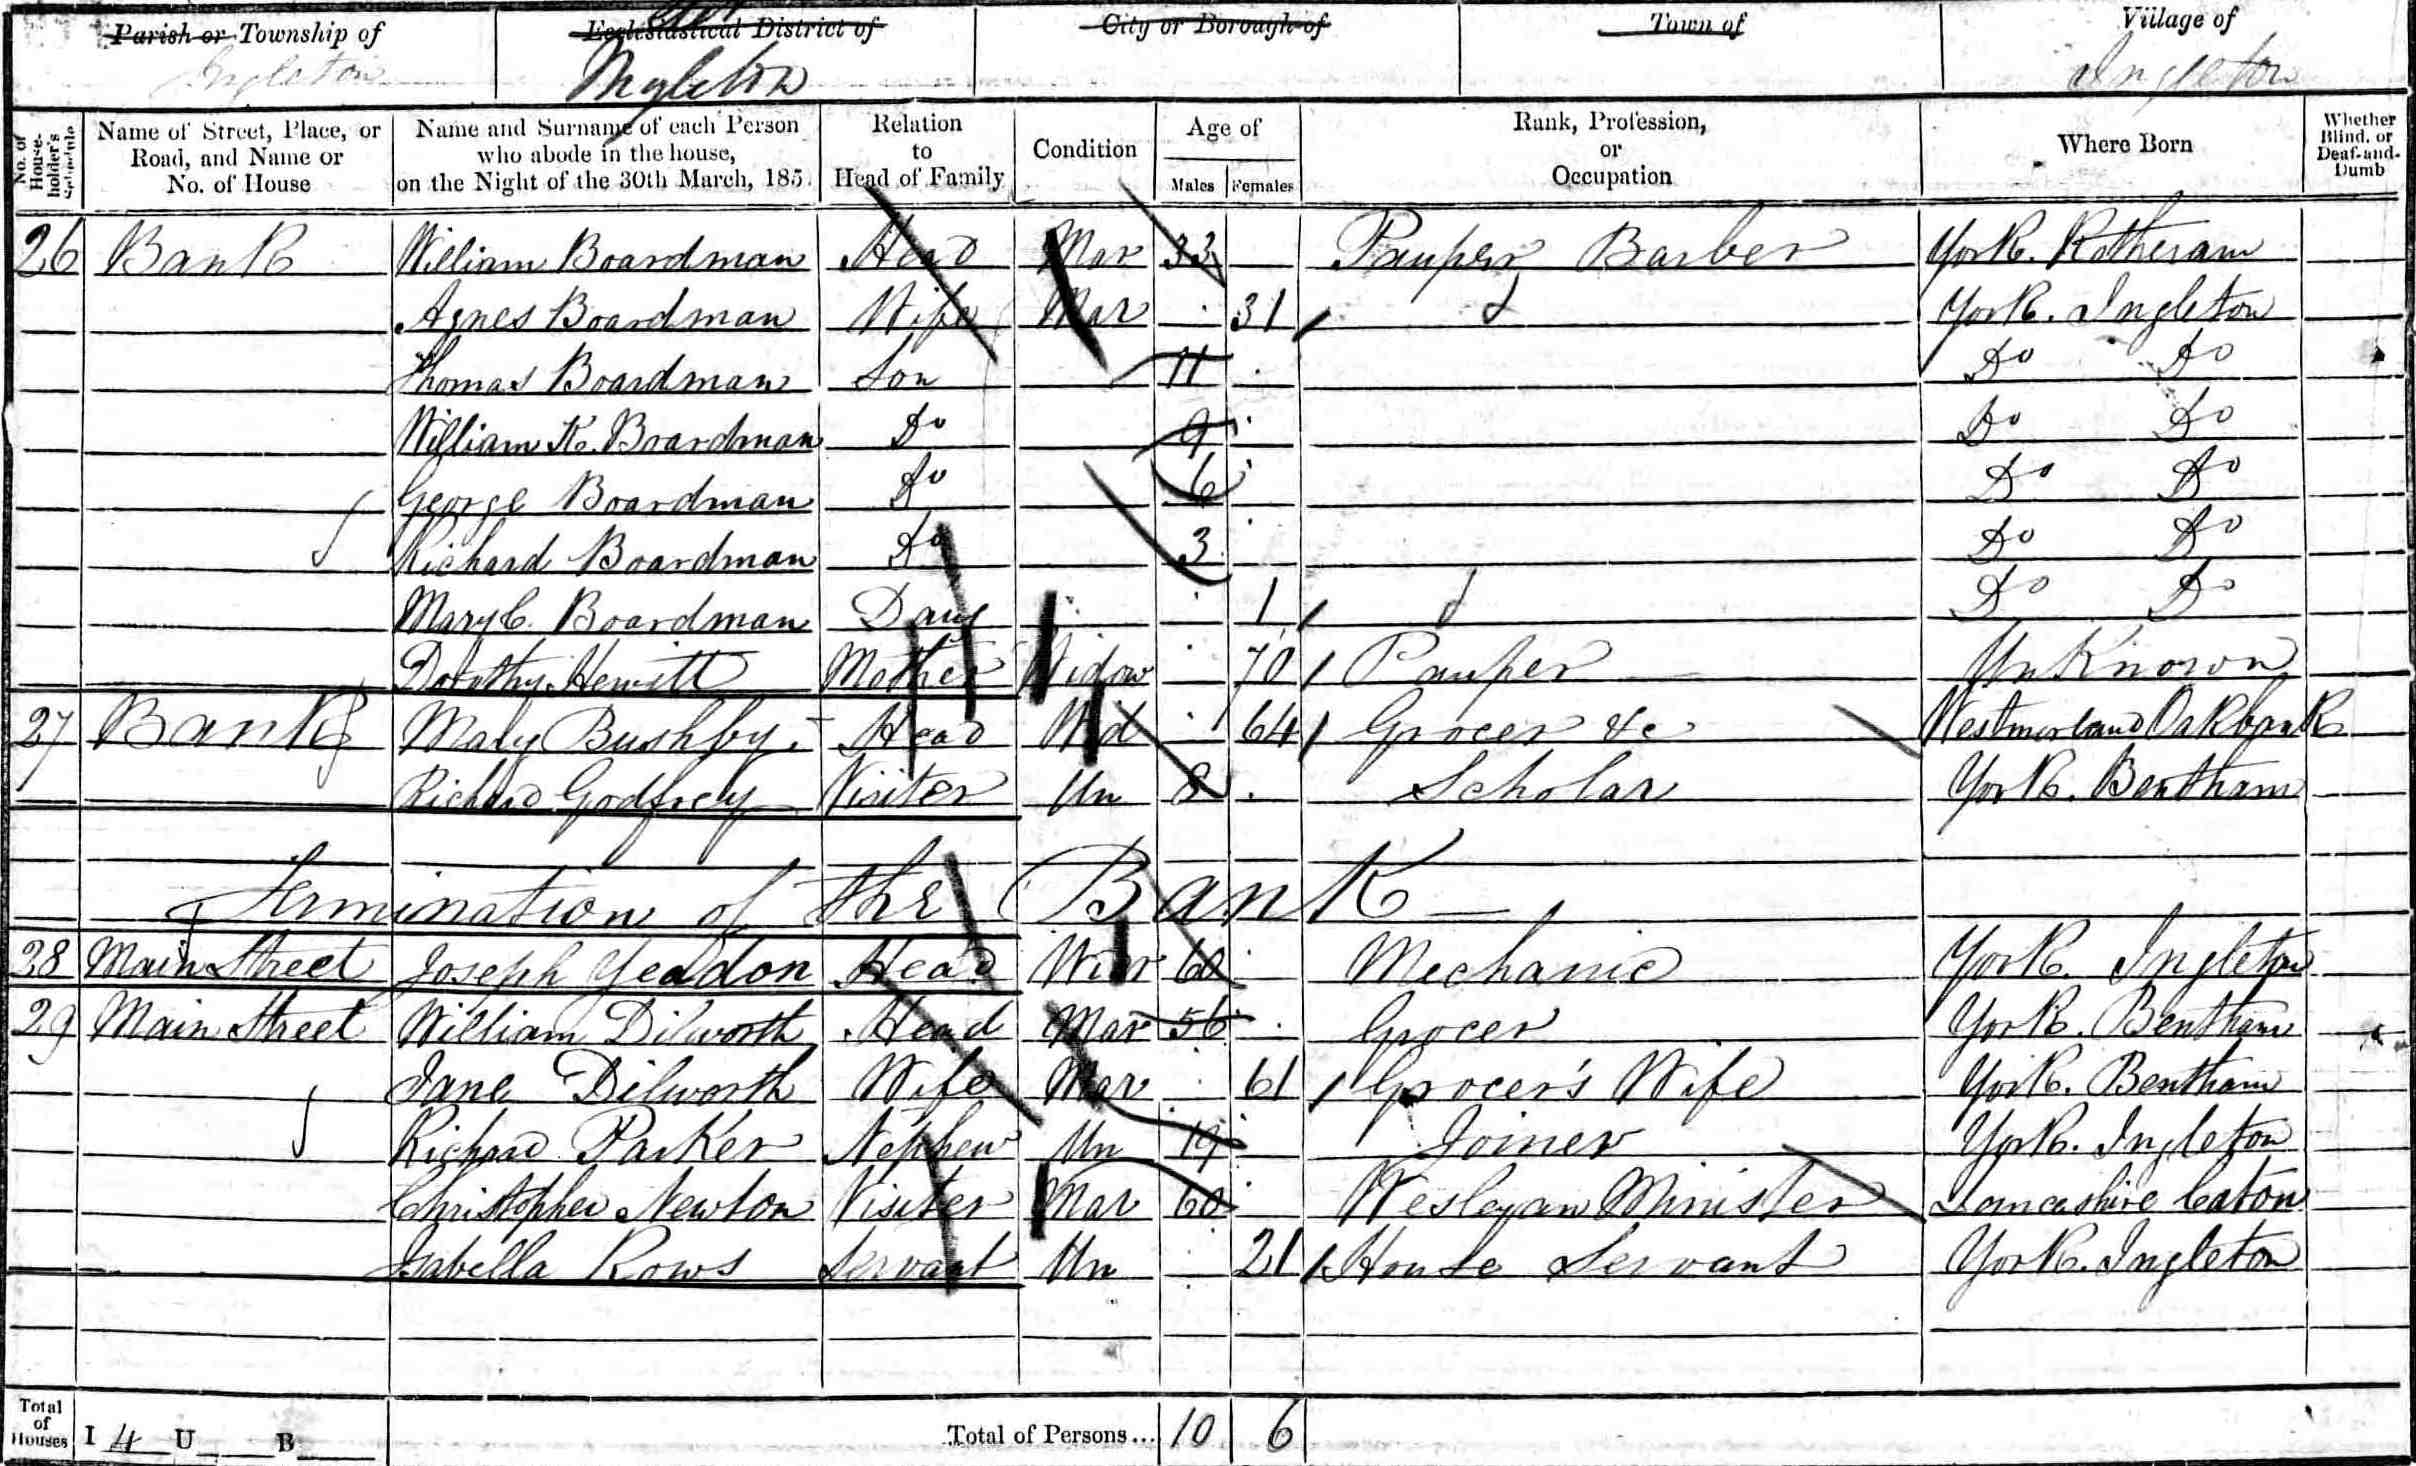 Parish or Township of Ecclesiastical District of City or Borough of Town of Village of
Ingleton Ingleton Ingleton
No. of House-holder's Schedule
Name of Street, Place, or Road, and Name or No. of House
Name and Surname of each Person who abode in the house, on the Night of the 30th March, 185
Relation to Head of Family
Condition
Age of
Males Females
Rank, Profession, or Occupation
Where Born
Whether Blind, or Deaf-and-Dumb
26 Bank William Boardman Head Mar 33 Pauper Barber York. Rotheram
Agnes Boardman Wife Mar 31 York. Ingleton
Thomas Boardman Son 11 Do Do
William K. Boardman Do 9 Do Do
George Boardman Do 6 Do Do
Richard Boardman Do 3 Do Do
Mary C. Boardman Daug 1 Do Do
Dorothy Hewitt Mother Widow 70 Pauper UnKnown
27 Bank Mary Bushby Head Wd 64 Grocer &c Westmorland Oakbank
Richard Godfrey Visiter Un 8 Scholar York. Bentham
Termination of the Bank
28 Main Street Joseph Yeadon Head Widr 60 Mechanic York. Ingleton
29 Main Street William Dilworth Head Mar 56 Grocer York. Bentham
Jane Dilworth Wife Mar 61 Grocer's Wife York. Bentham
Richard Parker Nephew Un 19 Joiner York. Ingleton
Christopher Newton Visiter Mar 60 Wesleyan Minister Lancashire Caton
Isabella Rows Servant Un 21 House Servant York. Ingleton
Total of Houses I 4 U B Total of Persons... 10 6